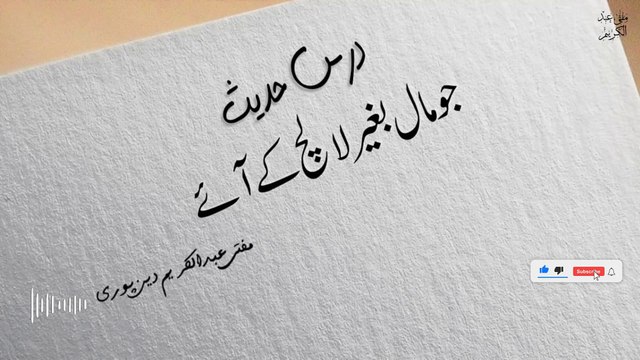 مفتی عبد
الکریم
درس حدیث
جو مال بغیر لالچ کے آئے
مفتی عبدالکریم دین پوری
Subscribe